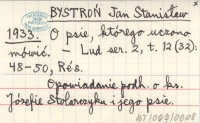 BYSTROŃ Jan Stanisław
1933. O psie, którego uczono
mówić. – Lud ser. 2, t. 12 (32):
48-50, Rés.
Opowiadanie podh. o ks.
Józefie Stolarczyku i jego psie.